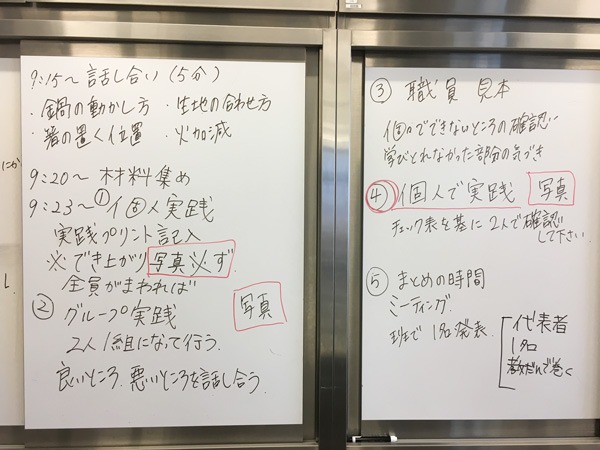 9:15～ 話し合い (5分)
・鍋の動かし方 ・生地の合わせ方
・箸の置く位置 ・火加減
9:20～ 材料集め
9:23～ ①個人実践
実践プリント記入
※でき上がり写真必ず
全員がまわれば
写真
② グループ実践
2人1組になって行う。
良いところ、悪いところを話し合う。
③ 職員 見本
個々でできないところの確認
学びとれなかった部分の気づき
④ 個人で実践 写真
チェック表を基に2人で確認
して下さい
⑤ まとめの時間
ミーティング
班で 1名発表
代表者
1名
だんで巻く
にか
し